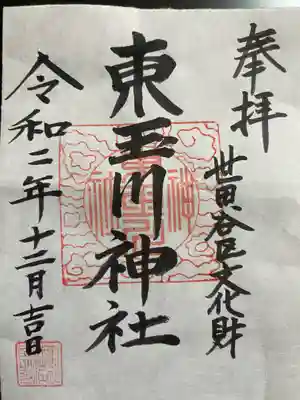 奉拝
世田谷区文化財
東玉川神社
令和二年十二月吉日